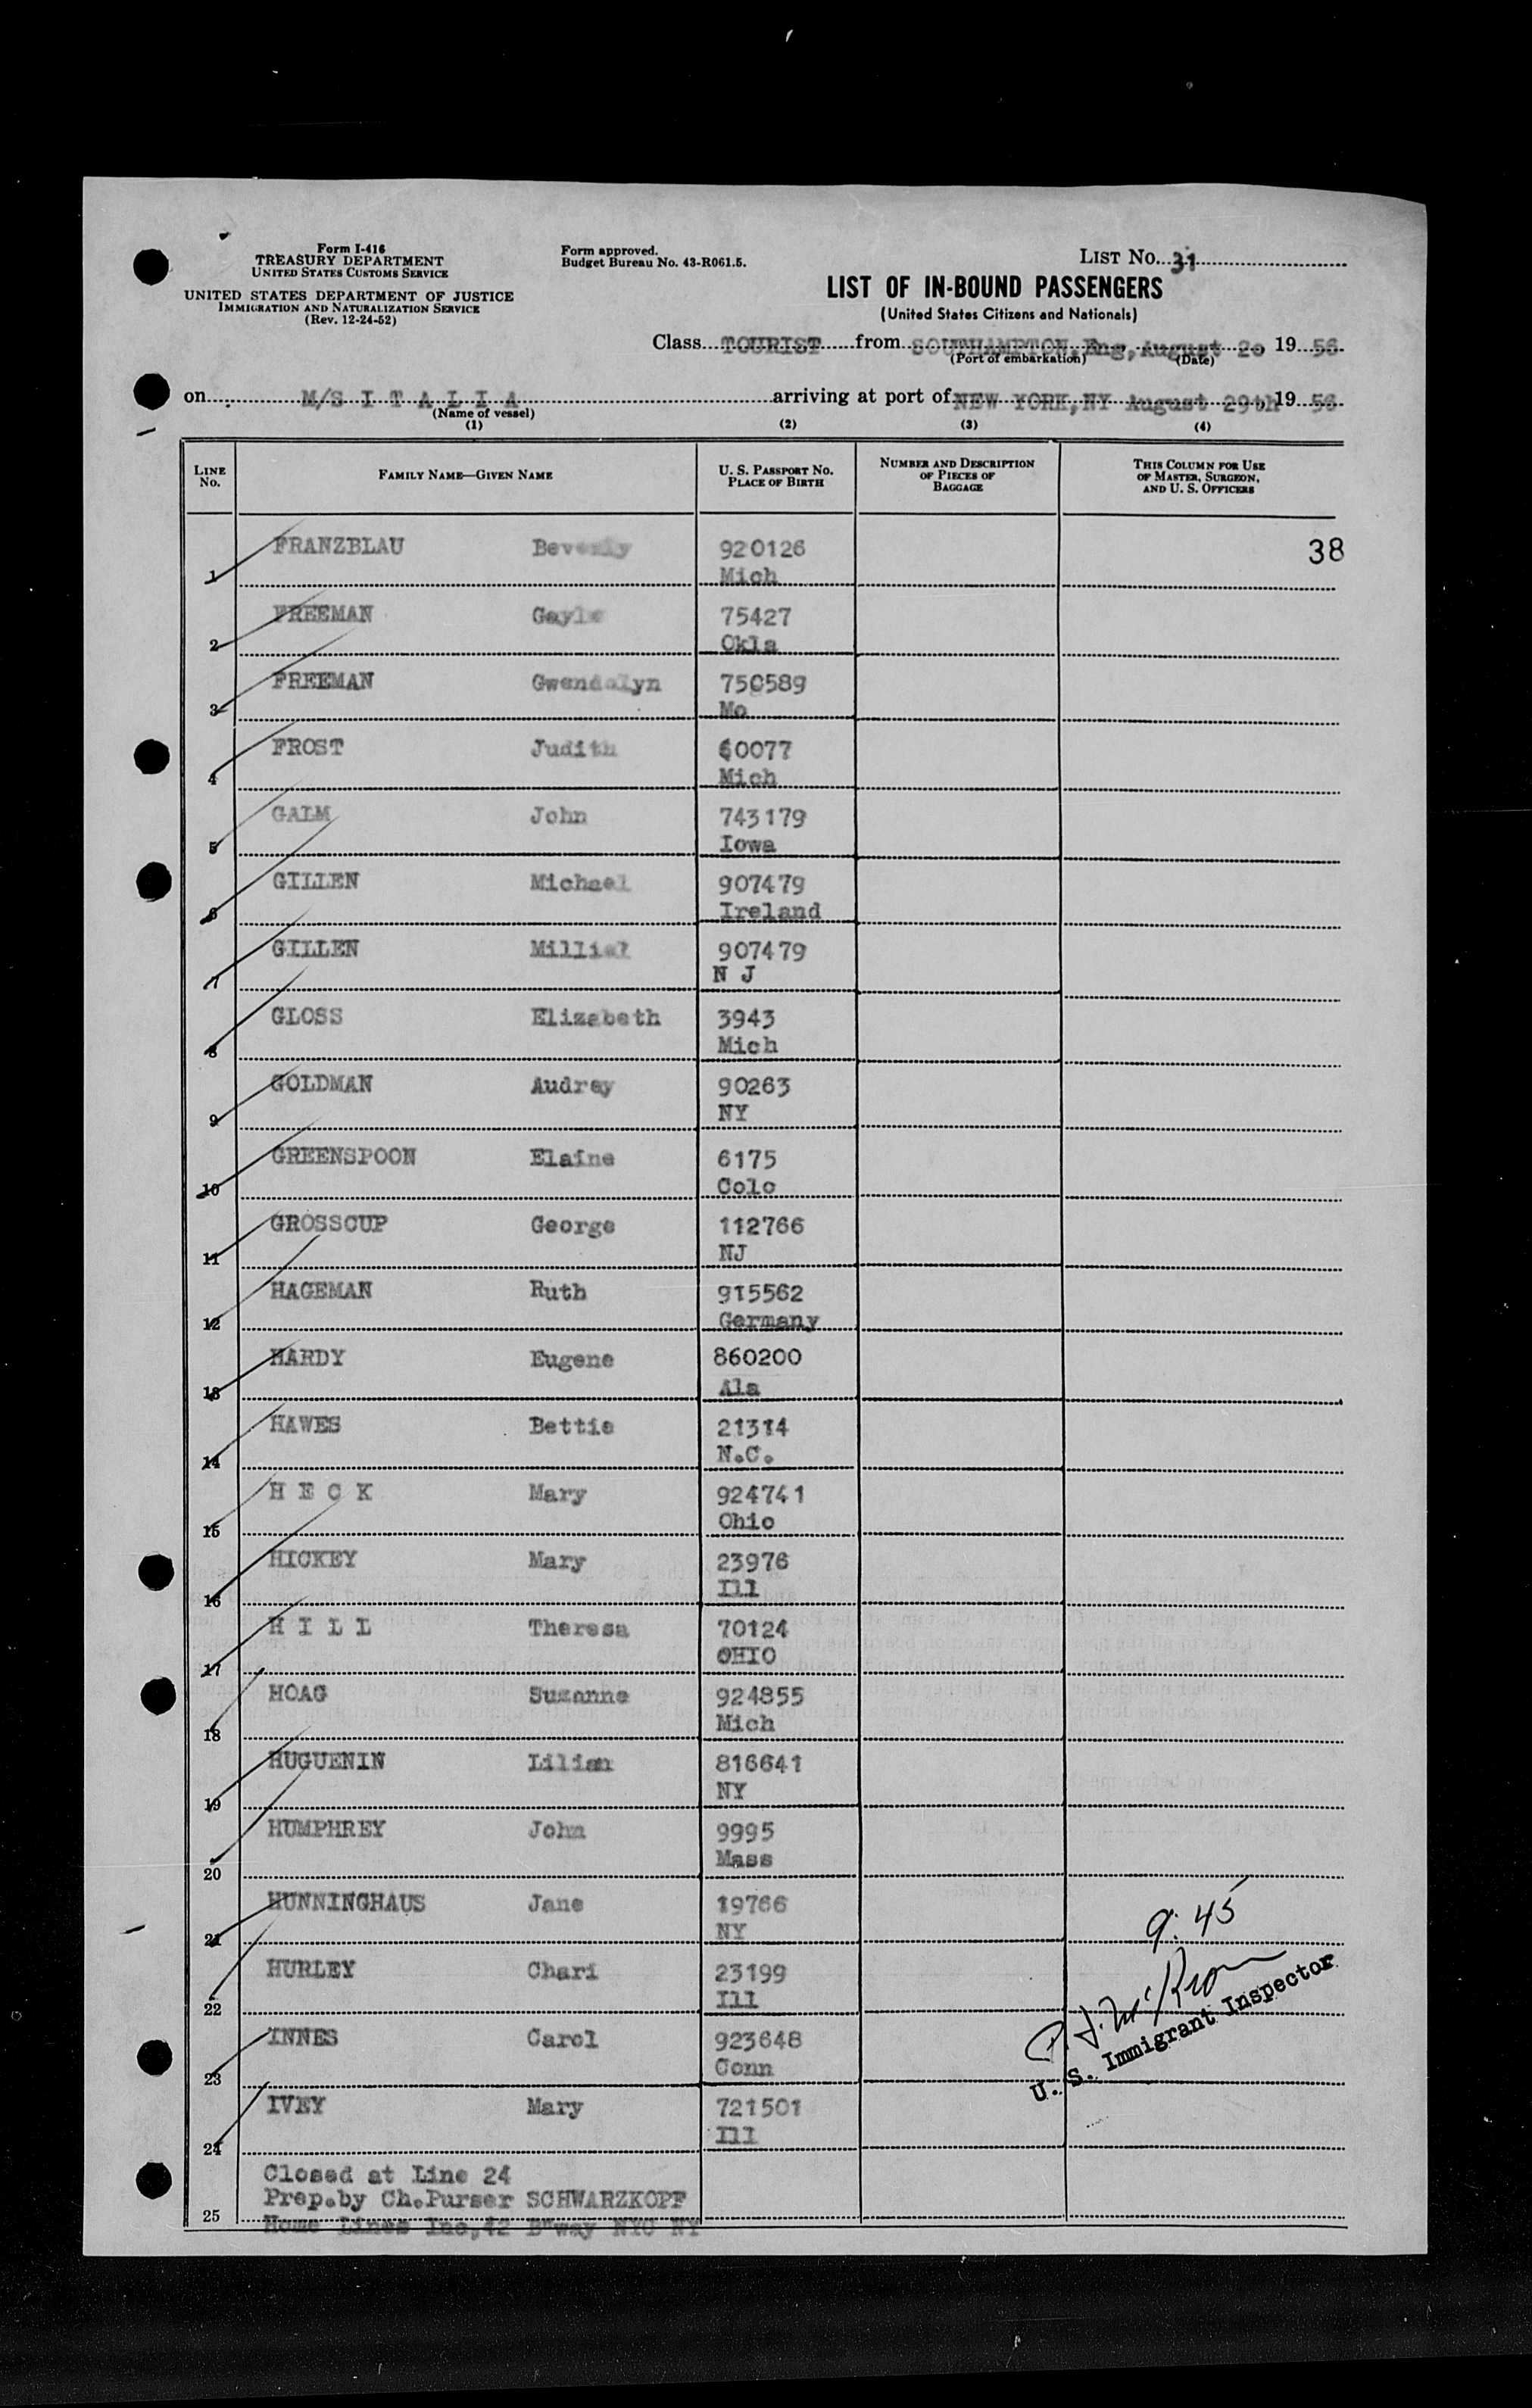 Form I-416
TREASURY DEPARTMENT
UNITED STATES CUSTOMS SERVICE
UNITED STATES DEPARTMENT OF JUSTICE
IMMIGRATION AND NATURALIZATION SERVICE
(Rev. 12-24-52)
Form approved.
Budget Bureau No. 43-R061.5.
LIST No. 31
LIST OF IN-BOUND PASSENGERS
(United States Citizens and Nationals)
Class TOURIST from SOUTHAMPTON, Eng, August 20 19 56
(Port of embarkation) (Date)
on M/S I T A L I A arriving at port of NEW YORK, NY August 29th 19 56
(Name of vessel)
(1) (2) (3) (4)
LINE No. FAMILY NAME—GIVEN NAME U. S. PASSPORT No. PLACE OF BIRTH NUMBER AND DESCRIPTION OF PIECES OF BAGGAGE THIS COLUMN FOR USE OF MASTER, SURGEON, AND U. S. OFFICERS
38
1 FRANZBLAU Beverly 920126
Mich
2 FREEMAN Gayle 75427
Okla
3 FREEMAN Gwendolyn 750589
Mo
4 FROST Judith 60077
Mich
5 GALM John 743179
Iowa
6 GILLEN Michael 907479
Ireland
7 GILLEN 907479
N J
8 GLOSS Elizabeth 3943
Mich
9 GOLDMAN Audrey 90263
NY
10 GREENSPOON Elaine 6175
Colo
11 GROSSCUP George 112766
NJ
12 HAGEMAN Ruth 915562
Germany
13 HARDY Eugene 860200
Ala
14 HAWES Bettie 21314
N.C.
15 H E C K Mary 924741
Ohio
16 HICKEY Mary 23976
Ill
17 H I L L Theresa 70124
OHIO
18 HOAG Suzanne 924855
Mich
19 HUGUENIN Lilian 816641
NY
20 HUMPHREY John 9995
Mass
21 HUNNINGHAUS Jane 19766
NY
9:45
22 HURLEY Chari 23199
Ill
U. S. Immigrant Inspector
23 INNES Carol 923648
Conn
24 IVEY Mary 721501
Ill
Closed at Line 24
Prep.by Ch.Purser SCHWARZKOPF
25
Home Lines Inc,42 B'way NYC NY